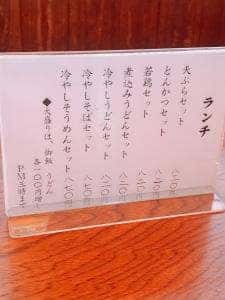 ランチ
天ぷらセット 八二〇円
とんかつセット 八二〇円
若鶏セット 八二〇円
煮込みうどんセット 八二〇円
冷やしうどんセット 八二〇円
冷やしそばセット 八七〇円
冷やしそうめんセット 八七〇円
◆大盛りは、御飯 うどん
各一〇〇円増し
PM三時まで